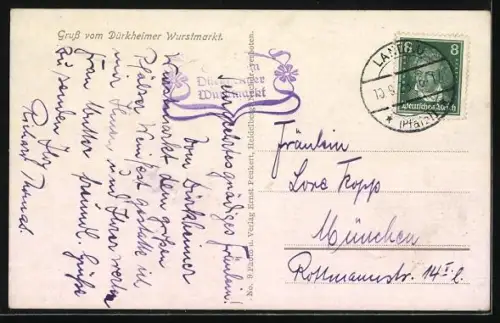 Gruß vom Dürkheimer Wurstmarkt.
Dürkheimer
Wurstmarkt
Sehr geehrtes gnädiges Fräulein!
Vom Dürkheimer
Wurstmarkt dem großen
Pfälzer Weinfest gestatte ich
mir Ihnen und Ihrer werten
Frau Mutter freundl. Grüße
zu senden Ihr
Richard Thomas.
No. 9 Photo u. Verlag Ernst Peukert, Heidelberg verboten.
LANDAU
(Pfalz)
8
Deutsches Reich
Fräulein
Lore Kopp
München
Rottmannstr. 14 I l.